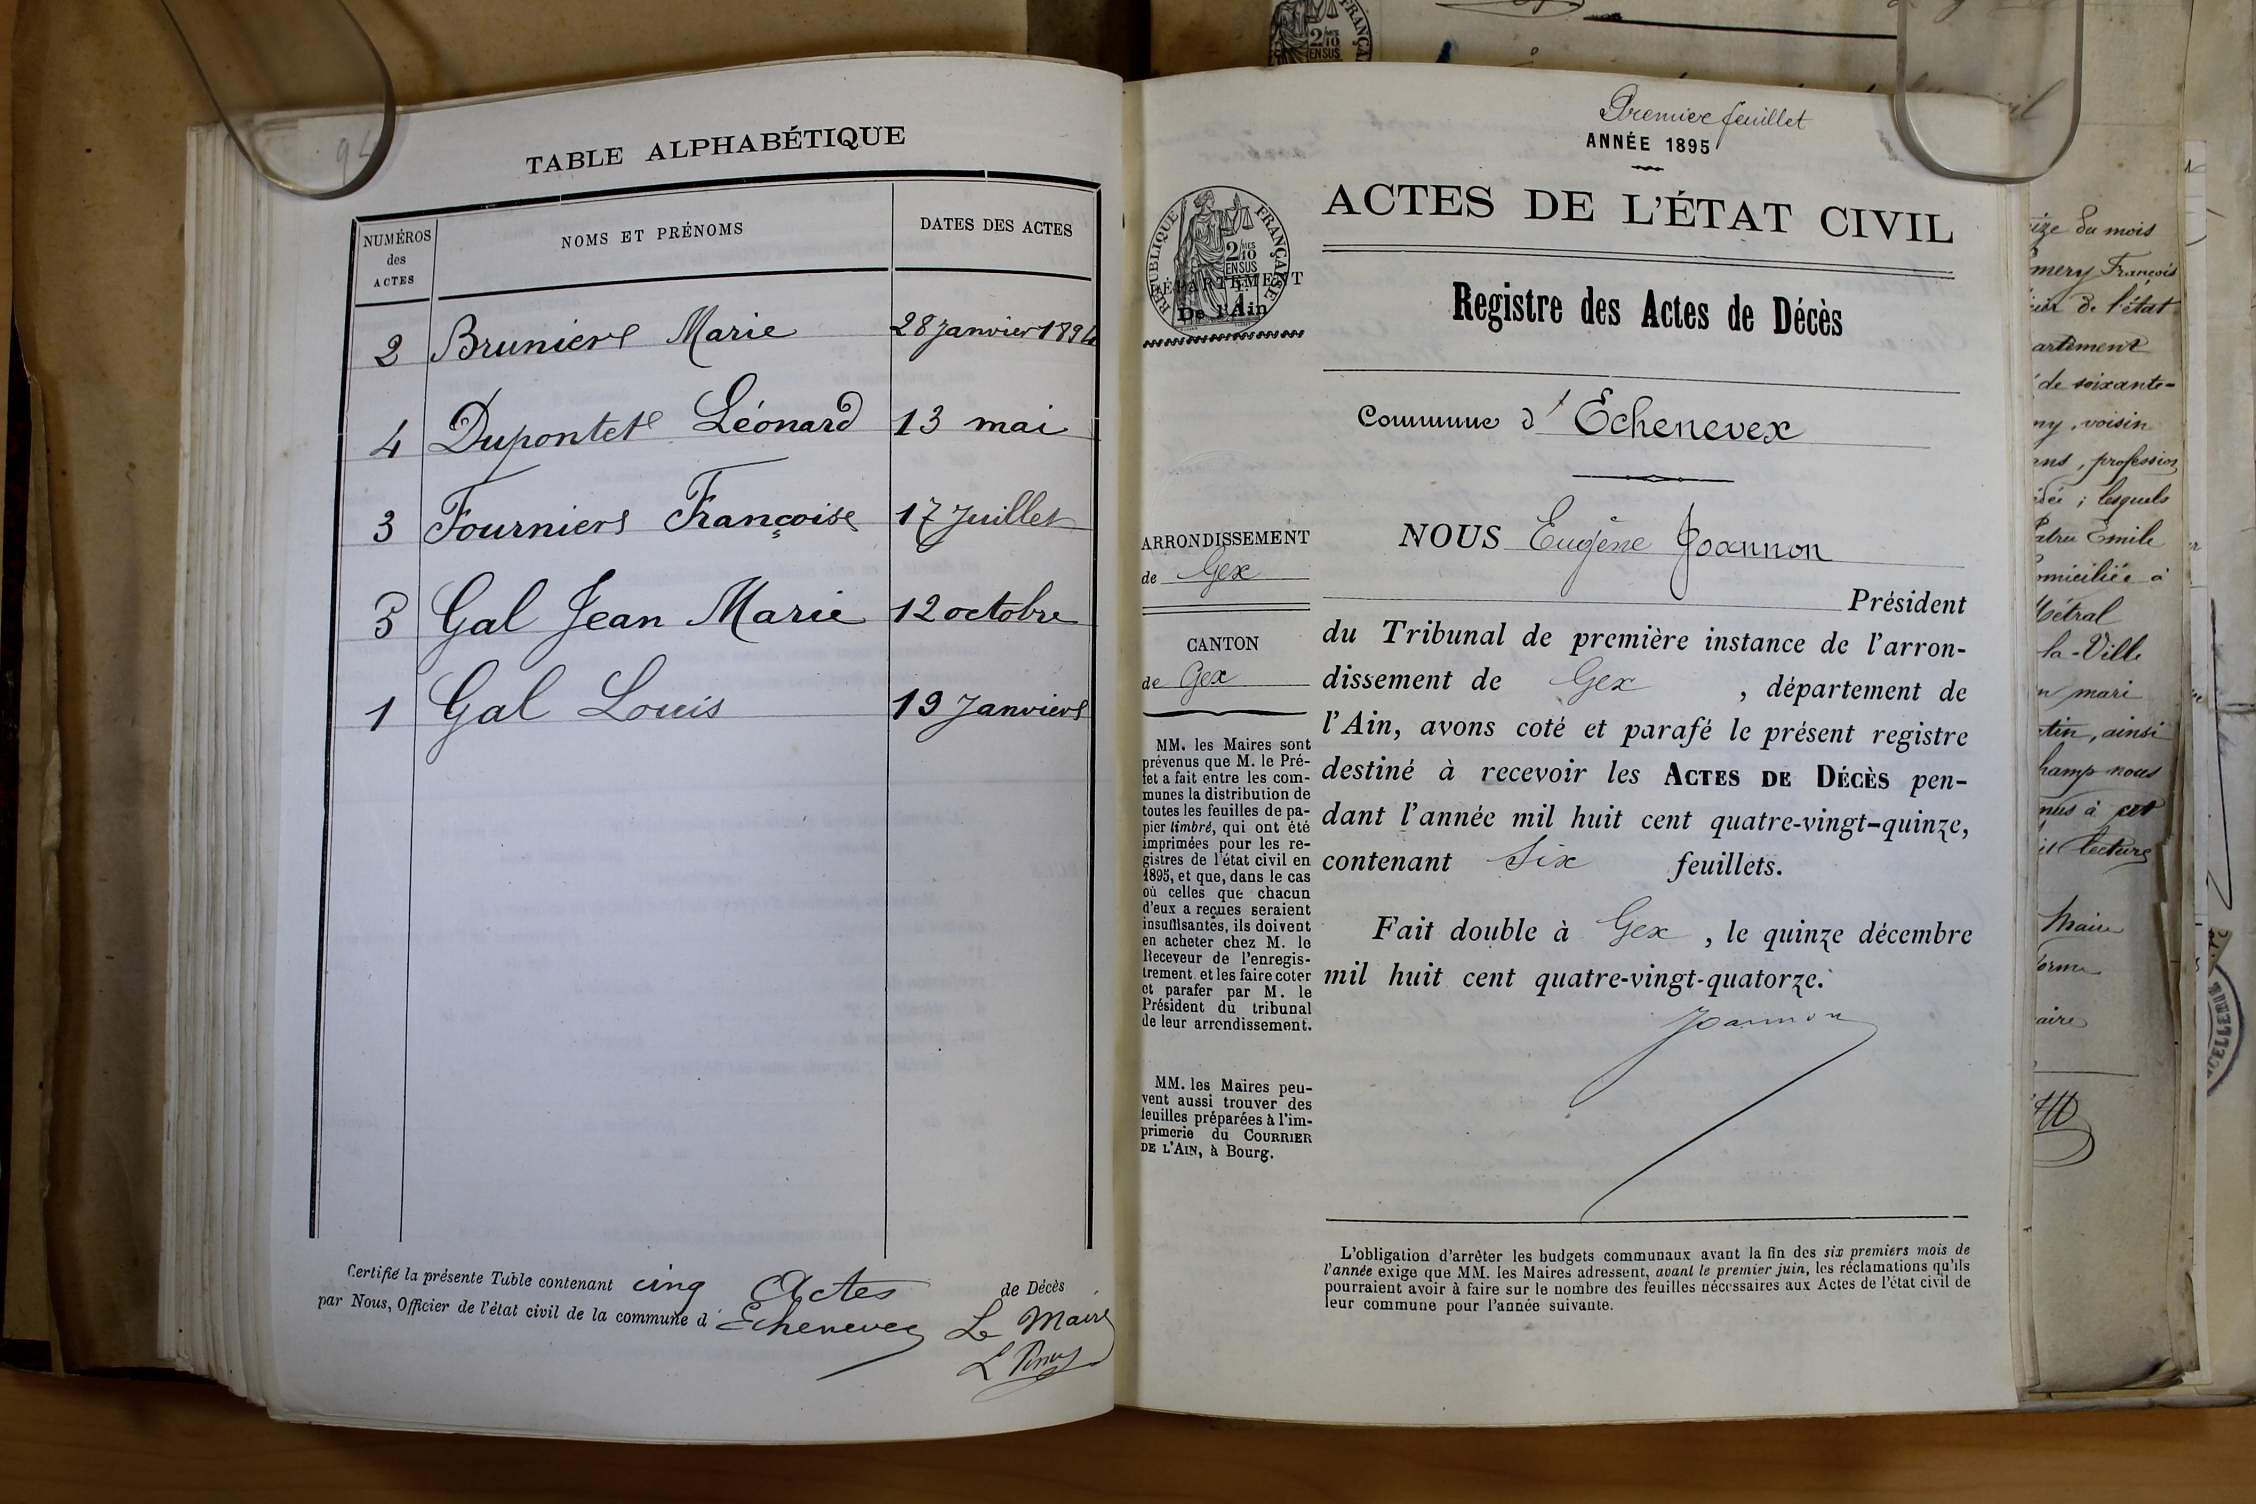 94
TABLE ALPHABÉTIQUE
NUMÉROS
des
ACTES
NOMS ET PRÉNOMS
DATES DES ACTES
2 Brunier Marie 28 Janvier 1894
4 Dupontet Léonard 13 mai
3 Fournier Françoise 17 Juillet
5 Gal Jean Marie 12 octobre
1 Gal Louis 19 Janvier
Certifié la présente Table contenant cinq Actes de Décès
par Nous, Officier de l'état civil de la commune d'Echenevex Le Maire
Premier feuillet
ANNÉE 1895
ACTES DE L'ÉTAT CIVIL
RÉPUBLIQUE FRANÇAISE
2/10
EN SUS
DÉPARTEMENT
De l'Ain
Registre des Actes de Décès
Commune d'Echenevex
ARRONDISSEMENT
de Gex
CANTON
de Gex
MM. les Maires sont
prévenus que M. le Pré-
fet a fait entre les com-
munes la distribution de
toutes les feuilles de pa-
pier timbré, qui ont été
imprimées pour les re-
gistres de l'état civil en
1895, et que, dans le cas
où celles que chacun
d'eux a reçues seraient
insuffisantes, ils doivent
en acheter chez M. le
Receveur de l'enregis-
trement et les faire coter
et parafer par M. le
Président du tribunal
de leur arrondissement.
MM. les Maires peu-
vent aussi trouver des
feuilles préparées à l'im-
primerie du COURRIER
DE L'AIN, à Bourg.
NOUS Eugène Joannon
Président
du Tribunal de première instance de l'arron-
dissement de Gex , département de
l'Ain, avons coté et parafé le présent registre
destiné à recevoir les ACTES DE DÉCÈS pen-
dant l'année mil huit cent quatre-vingt-quinze,
contenant six feuillets.
Fait double à Gex , le quinze décembre
mil huit cent quatre-vingt-quatorze.
Joannon
L'obligation d'arrêter les budgets communaux avant la fin des six premiers mois de
l'année exige que MM. les Maires adressent, avant le premier juin, les réclamations qu'ils
pourraient avoir à faire sur le nombre des feuilles nécessaires aux Actes de l'état civil de
leur commune pour l'année suivante.
du mois
François
de l'état
de soixante-
voisin
profession
lesquels
Emile
à
la-Ville
mari
ainsi
nous
à cet
lecture
Maire